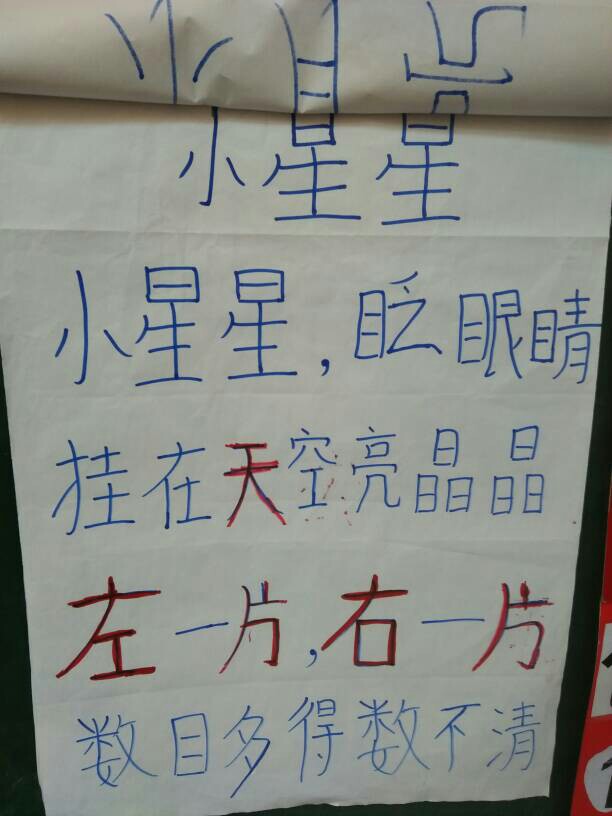 小星星
小星星,眨眼睛
挂在天空亮晶晶
左一片,右一片
数目多得数不清